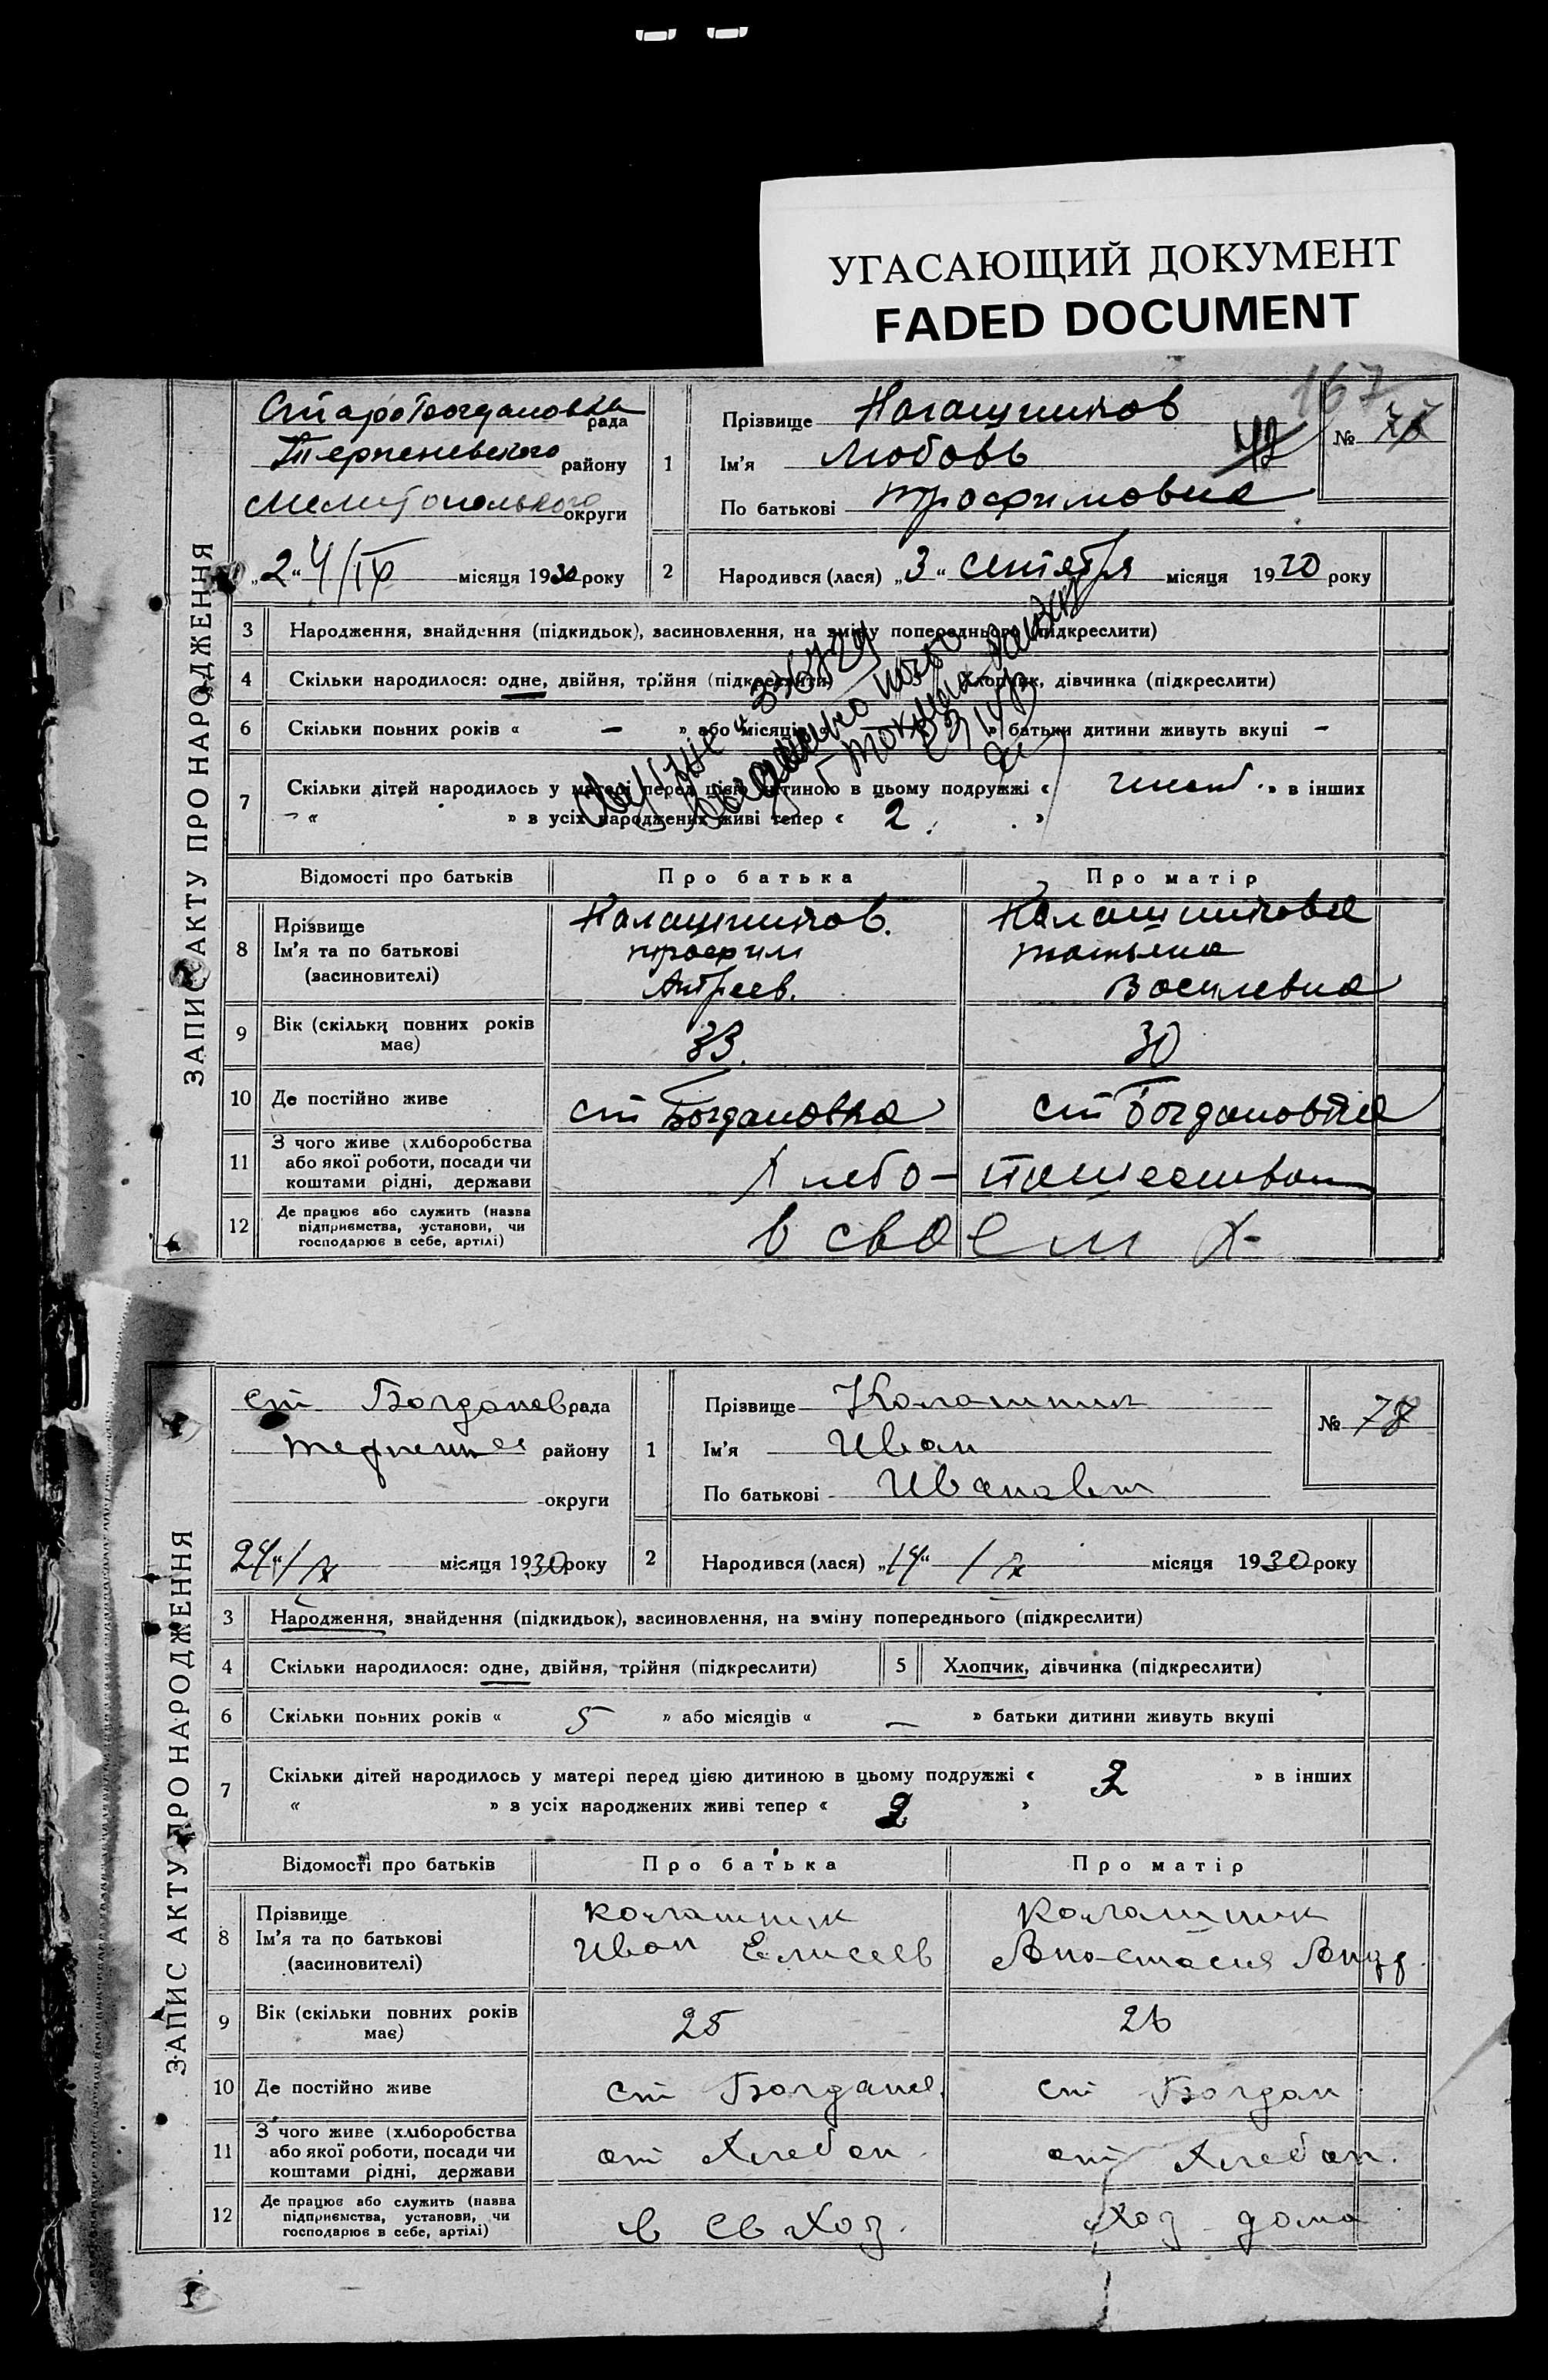 УГАСАЮЩИЙ ДОКУМЕНТ
FADED DOCUMENT
167
ЗАПИС АКТУ ПРО НАРОДЖЕННЯ
СтароБогдановка рада
Терпеневского району
Мелитопольского округи
„24/IX місяця 1930 року
1
Прізвище
Ім'я Любовь
По батькові Трофимовна
№ 77
2 Народився (лася) „3“ сентября місяця 19 року
3 Народження, знайдення (підкидьок), засиновлення, на зміну попереднього (підкреслити)
4 Скільки народилося: одне, двійня, трійня (підкреслити) Хлопчик, дівчинка (підкреслити)
6 Скільки повних років « — » або місяців » батьки дитини живуть вкупі —
7 Скільки дітей народилось у матері перед цією дитиною в цьому подружжі « » в інших
« » в усіх народжених живі тепер « 2 »
Відомості про батьків Про батька Про матір
8 Прізвище Калашников. Калашникова
Ім'я та по батькові Трофим Татьяна
(засновителі) Андреев. Василевна
9 Вік (скільки повних років має) 33. 30
10 Де постійно живе ст Богдановка ст Богдановка
11 З чого живе (хліборобства
або якої роботи, посади чи
коштами рідні, держави
Хлебо-пашеством
12 Де працює або служить (назва
підприємства, установи, чи
господарює в себе, артілі)
в своем х-
ЗАПИС АКТУ ПРО НАРОДЖЕННЯ
ст Богданов рада
району
округи
24“/IX місяця 1930 року
1
Прізвище Калашник
Ім'я Иван
По батькові Иванович
№ 78
2 Народився (лася) „14“ /IX місяця 1930 року
3 Народження, знайдення (підкидьок), засиновлення, на зміну попереднього (підкреслити)
4 Скільки народилося: одне, двійня, трійня (підкреслити) 5 Хлопчик, дівчинка (підкреслити)
6 Скільки повних років « 5 » або місяців « — » батьки дитини живуть вкупі
7 Скільки дітей народилось у матері перед цією дитиною в цьому подружжі « 2 » в інших
« » в усіх народжених живі тепер « 2 »
Відомості про батьків Про батька Про матір
8 Прізвище Калашник Калашник
Ім'я та по батькові Иван Елисеев Анастасия Андр.
(засиновителі)
9 Вік (скільки повних років має) 25 26
10 Де постійно живе ст Богданов. ст Богдан
11 З чого живе (хліборобства
або якої роботи, посади чи
коштами рідні, держави
от Хлебоп. от Хлебоп.
12 Де працює або служить (назва
підприємства, установи, чи
господарює в себе, артілі)
в св хоз. хоз дома